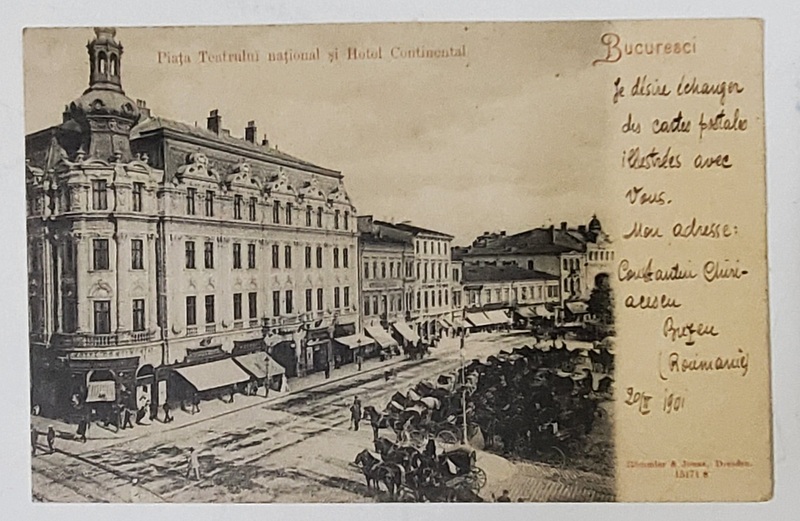 Piața Teatrului național și Hotel Continental
Bucuresci
Je désire échanger
des cartes postales
illustrées avec
Vous.
Mon adresse:
Constantin Chiri-
acescu
Buzeu
(Roumanie)
1901
Römmler & Jonas, Dresden.
15171 s